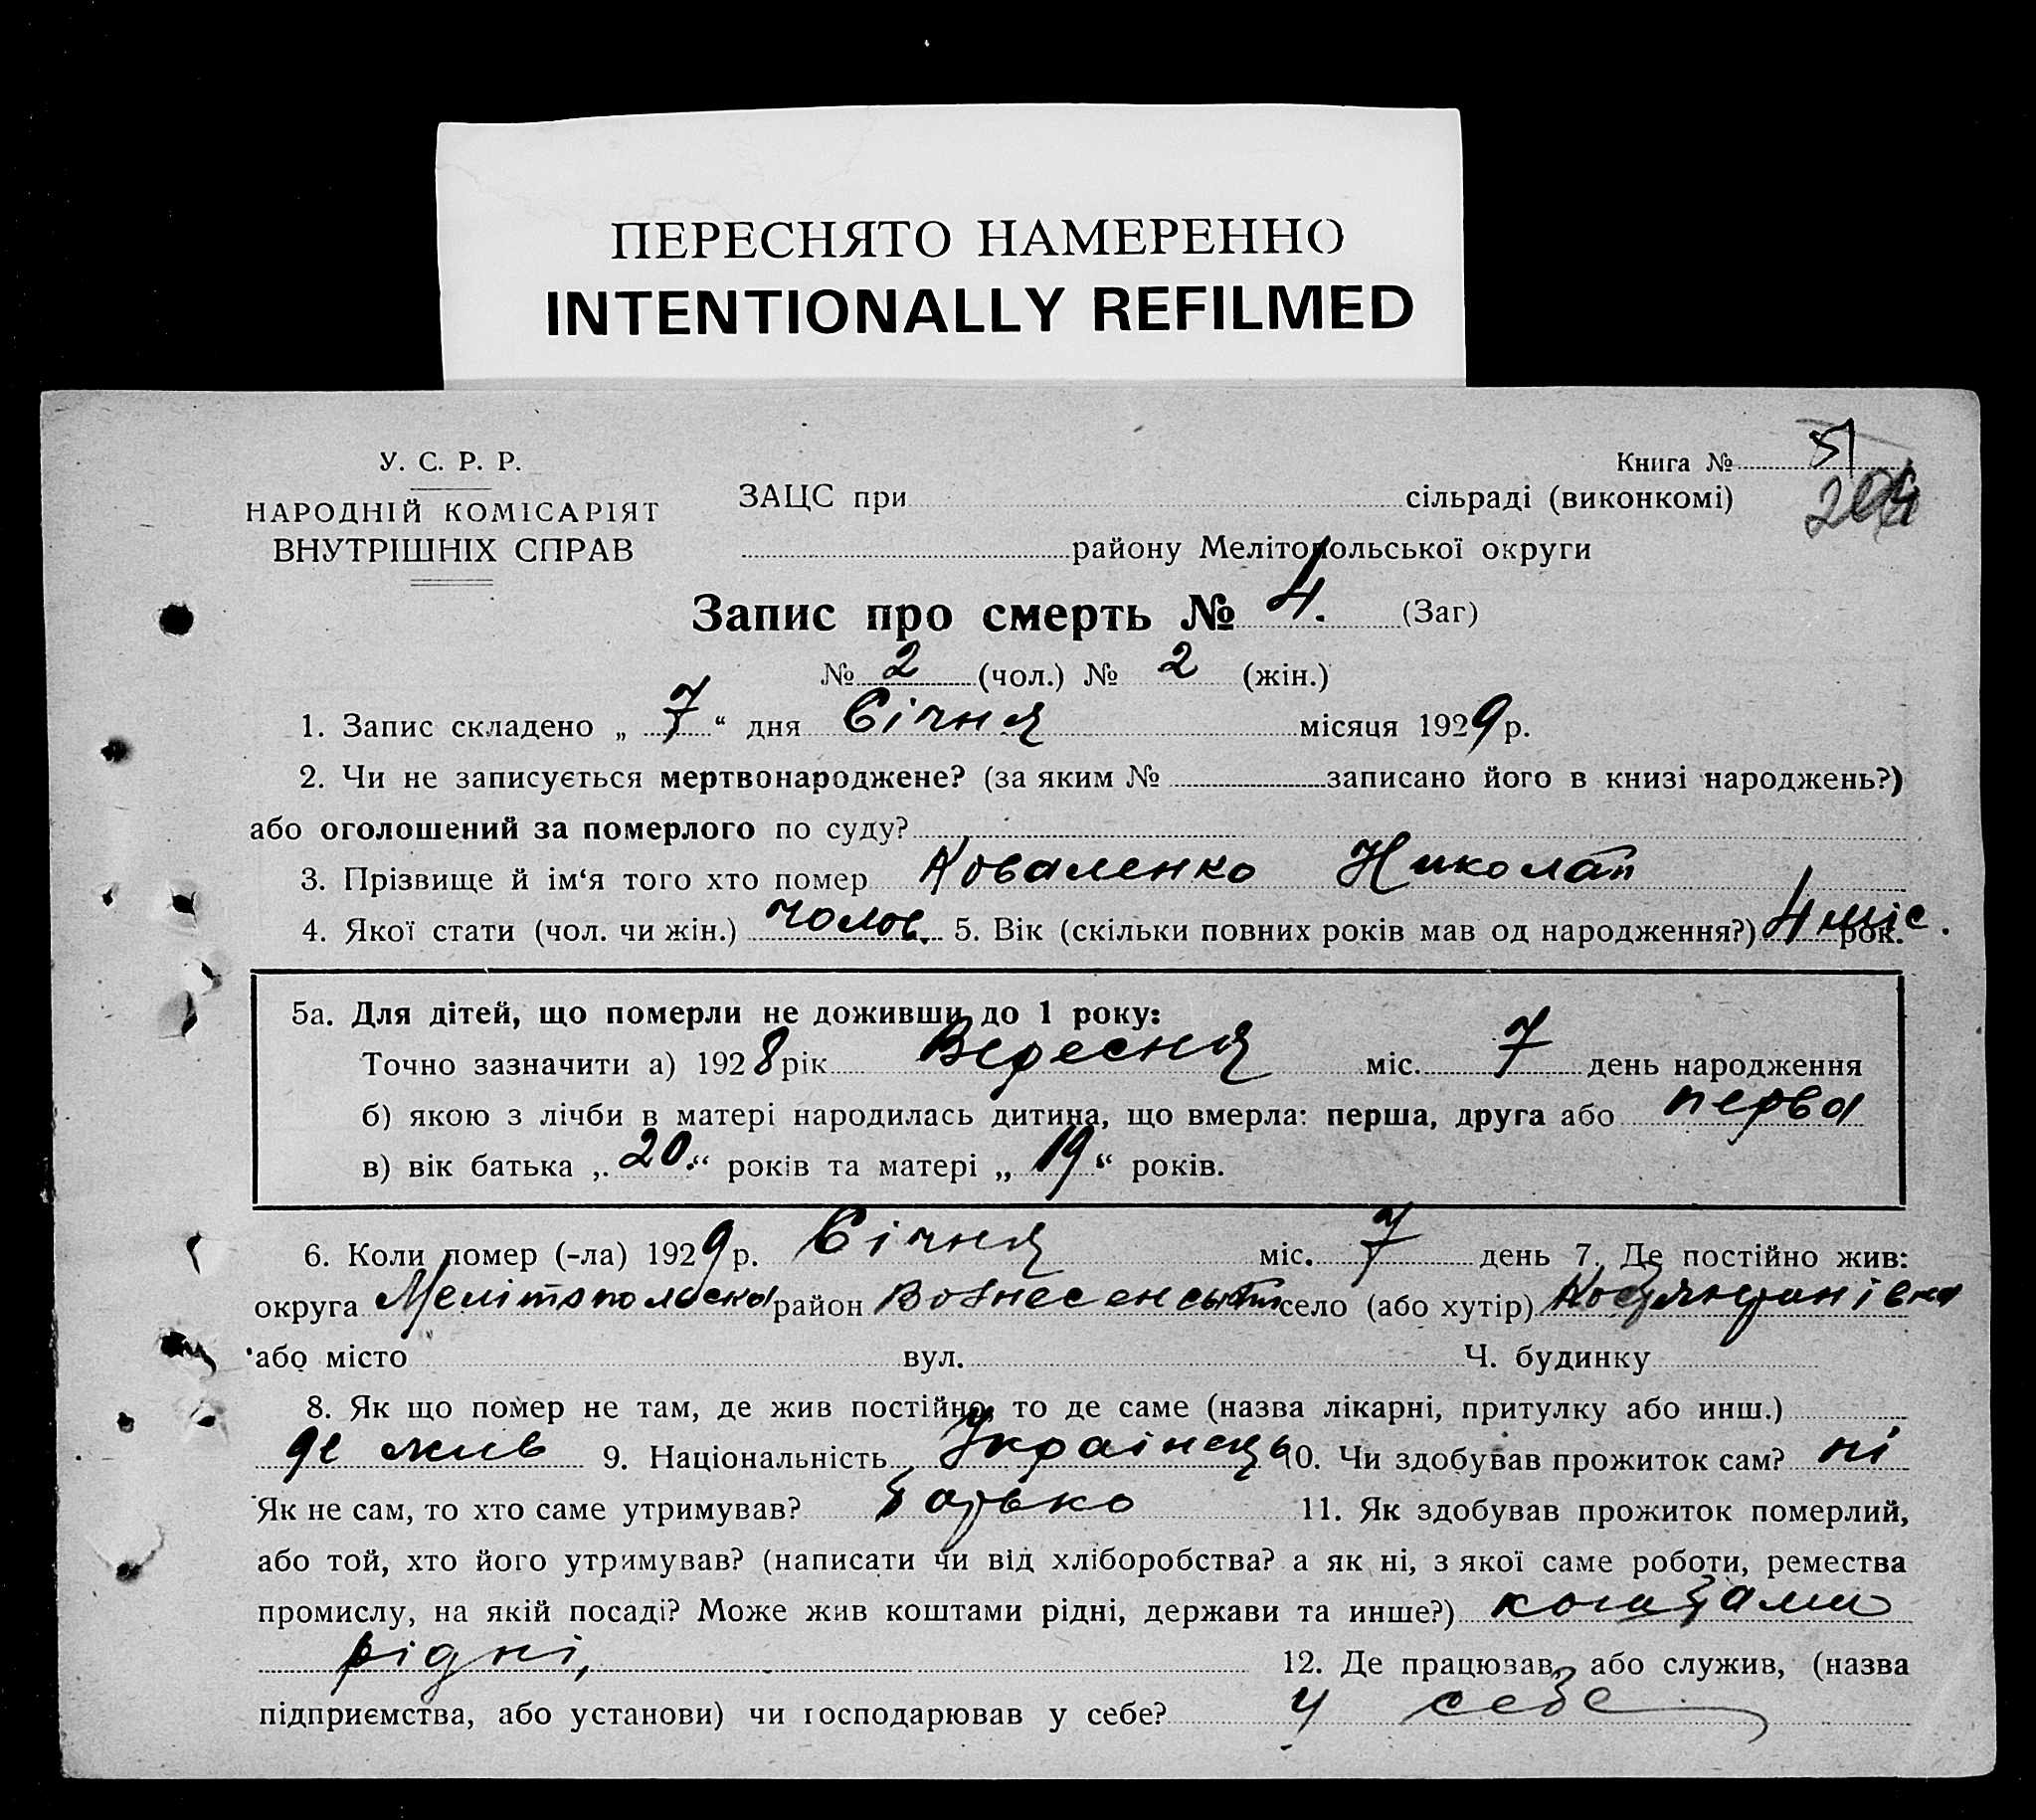 ПЕРЕСНЯТО НАМЕРЕННО
INTENTIONALLY REFILMED
У. С. Р. Р.
НАРОДНІЙ КОМІСАРІЯТ
ВНУТРІШНІХ СПРАВ
Книга № 51
ЗАЦС при сільраді (виконкомі)
району Мелітопольської округи
Запис про смерть № 4. (Заг)
№ 2 (чол.) № 2 (жін.)
1. Запис складено „ 7 “ дня Січня місяця 1929 р.
2. Чи не записується мертвонароджене? (за яким № записано його в книзі народжень?)
або оголошений за померлого по суду?
3. Прізвище й ім‘я того хто помер Коваленко Николай
4. Якої стати (чол. чи жін.) чолов. 5. Вік (скільки повних років мав од народження?) 4 міс. рок.
5а. Для дітей, що померли не доживши до 1 року:
Точно зазначити а) 1928 рік Вересня міс. 7 день народження
б) якою з лічби в матері народилась дитина, що вмерла: перша, друга або перва
в) вік батька „ 20. “ років та матері „ 19 “ років.
6. Коли помер (-ла) 1929 р. Січня міс. 7 день 7. Де постійно жив:
округа Мелітопольска район село (або хутір)
або місто вул. Ч. будинку
8. Як що помер не там, де жив постійно, то де саме (назва лікарні, притулку або инш.)
де жив 9. Національність Українець 10. Чи здобував прожиток сам? ні
Як не сам, то хто саме утримував? батько 11. Як здобував прожиток померлий,
або той, хто його утримував? (написати чи від хліборобства? а як ні, з якої саме роботи, ремества
промислу, на якій посаді? Може жив коштами рідні, держави та инше?) коштами
рідні, 12. Де працював, або служив, (назва
підприємства, або установи) чи господарював у себе? у себе